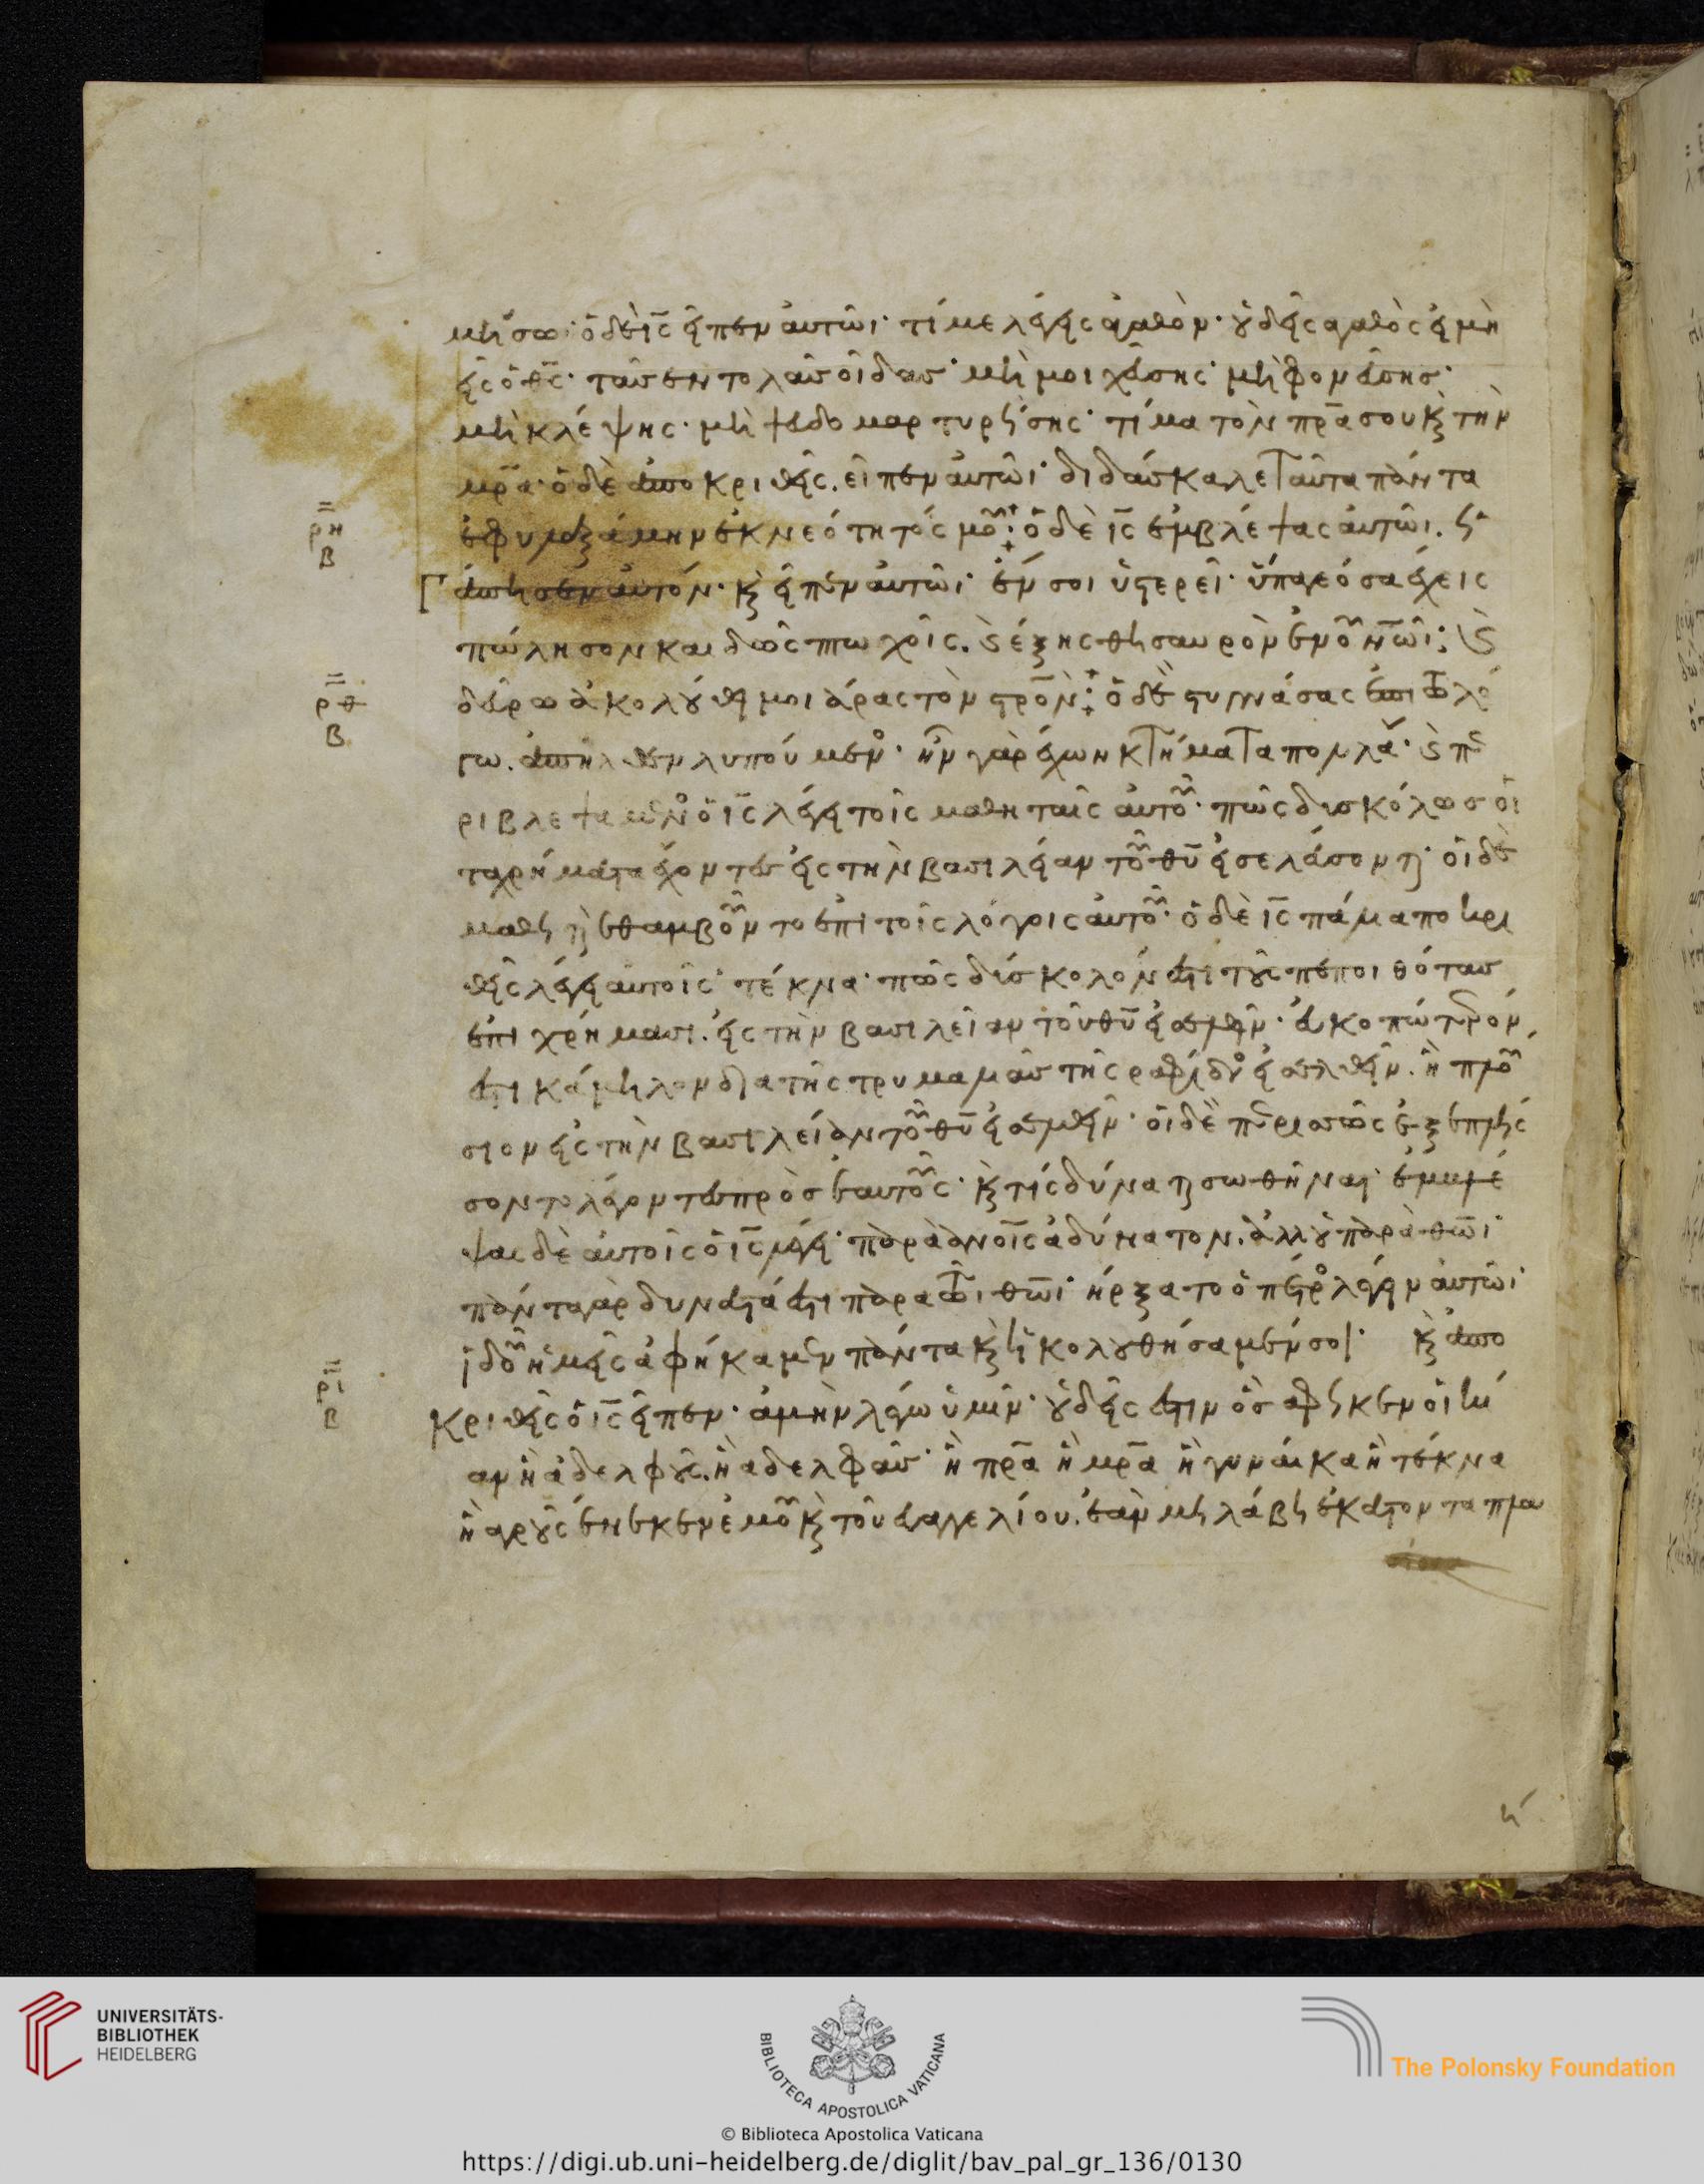 μήσω· ὁ δὲ ιϲ̅ εἶπεν αὐτῶι· τί με λέγεις ἀγαθόν· οὐδεὶς ἀγαθὸς εἰ μὴ
εἷς ὁ θϲ̅· τὰς ἐντολὰς οἶδας· μὴ μοιχεύσης· μὴ φονεύσης·
μὴ κλέψης· μὴ ψευδομαρτυρήσης· τίμα τὸν πρ̅α σου κ̀ τὴν
μρ̅α· ὁ δὲ ἀποκριθεὶς. εἶπεν αὐτῶι· διδάσκαλε ταῦτα πάντα
ρη
β
ἐφυλαξάμην ἐκ νεότητός μοῦ: ὁ δὲ ιϲ̅ ἐμβλέψας αὐτῶι. ἠ
γάπησεν αὐτόν· κ̀ εἶπεν αὐτῶι· ἕν σοι ὑστερεῖ· ὕπαγε ὅσα ἔχεις
πώλησον και δὸς πτωχοῖς. κ̀ ἕξης θησαυρὸν ἐν οὐν̅ῶι: κ̀
ρθ
β
δεῦρο ἀκολούθει μοι ἄρας τὸν στρο̅ν: ὁ δὲ στυγνάσας ἐπι τῶ λό
γω. ἀπῆλθεν λυπούμενος· ἦν γὰρ ἔχων κτήματα πολλά· κ̀ πε
ριβλεψάμενος ὁ ιϲ̅ λέγει τοῖς μαθηταῖς αὐτοῦ· πῶς δυσκόλως οἱ
τα χρήματα ἔχοντες εἰς τὴν βασιλείαν τοῦ θυ̅ εἰσελεύσονται· οἱ δὲ
μαθηταὶ ἐθαμβοῦντο ἐπὶ τοῖς λόγοις αὐτοῦ· ὁ δὲ ιϲ̅ πάλιν αποκρι
θεὶς λέγει αὐτοῖς· τέκνα· πῶς δύσκολόν ἐστι τοὺς πεποιθότας
ἐπὶ χρήμασι. εἰς τὴν βασιλεῖαν τοῦ θυ̅ εἰσελθεῖν· εὐκοπώτερόν
ἐστι κάμηλον δια τῆς τρυμαλιᾶς τῆς ραφίδος εἰσελθεῖν. ἢ πλού
σιον εἰς τὴν βασιλείαν τοῦ θυ̅ εἰσελθεῖν· οἱ δὲ περισσῶς ἐξεπλήσ
σοντο λέγοντες πρὸς ἑαυτοὺς· κ̀ τίς δύναται σωθῆναι· ἐμβλέ
ψας δὲ αὐτοῖς ὁ ιϲ̅ λέγει· παρὰ ἀνοι̅ς ἀδύνατον. ἀλλ' οὐ παρὰ θω̅ι·
πάντα γὰρ δυνατά ἐστι παρα τῶι θω̅ι· ἤρξατο ὁ πέτρος λέγειν αὐτῶι·
ἰδοῦ ἡμεῖς ἀφήκαμεν πάντα κ̀ ἠκολουθήσαμέν σοι· κ̀ ἀπο
ρι
β
κριθεὶς ὁ ιϲ̅ εἶπεν· ἀμὴν λέγω ὑμῖν· οὐδεὶς ἐστιν ὃς αφῆκεν οἰκί
αν ἢ ἀδελφοὺς. ἢ αδελφὰς· ἢ πρ̅α ἢ μρ̅α ἢ γυναῖκα ἢ τέκνα
ἢ αγροὺς ἕνεκεν ἐμοῦ κ̀ τοῦ εὐαγγελίου. ἐὰν μὴ λάβη ἑκατονταπλα
UNIVERSITÄTS-
BIBLIOTHEK
HEIDELBERG
BIBLIOTECA APOSTOLICA VATICANA
The Polonsky Foundation
© Biblioteca Apostolica Vaticana
https://digi.ub.uni-heidelberg.de/diglit/bav_pal_gr_136/0130